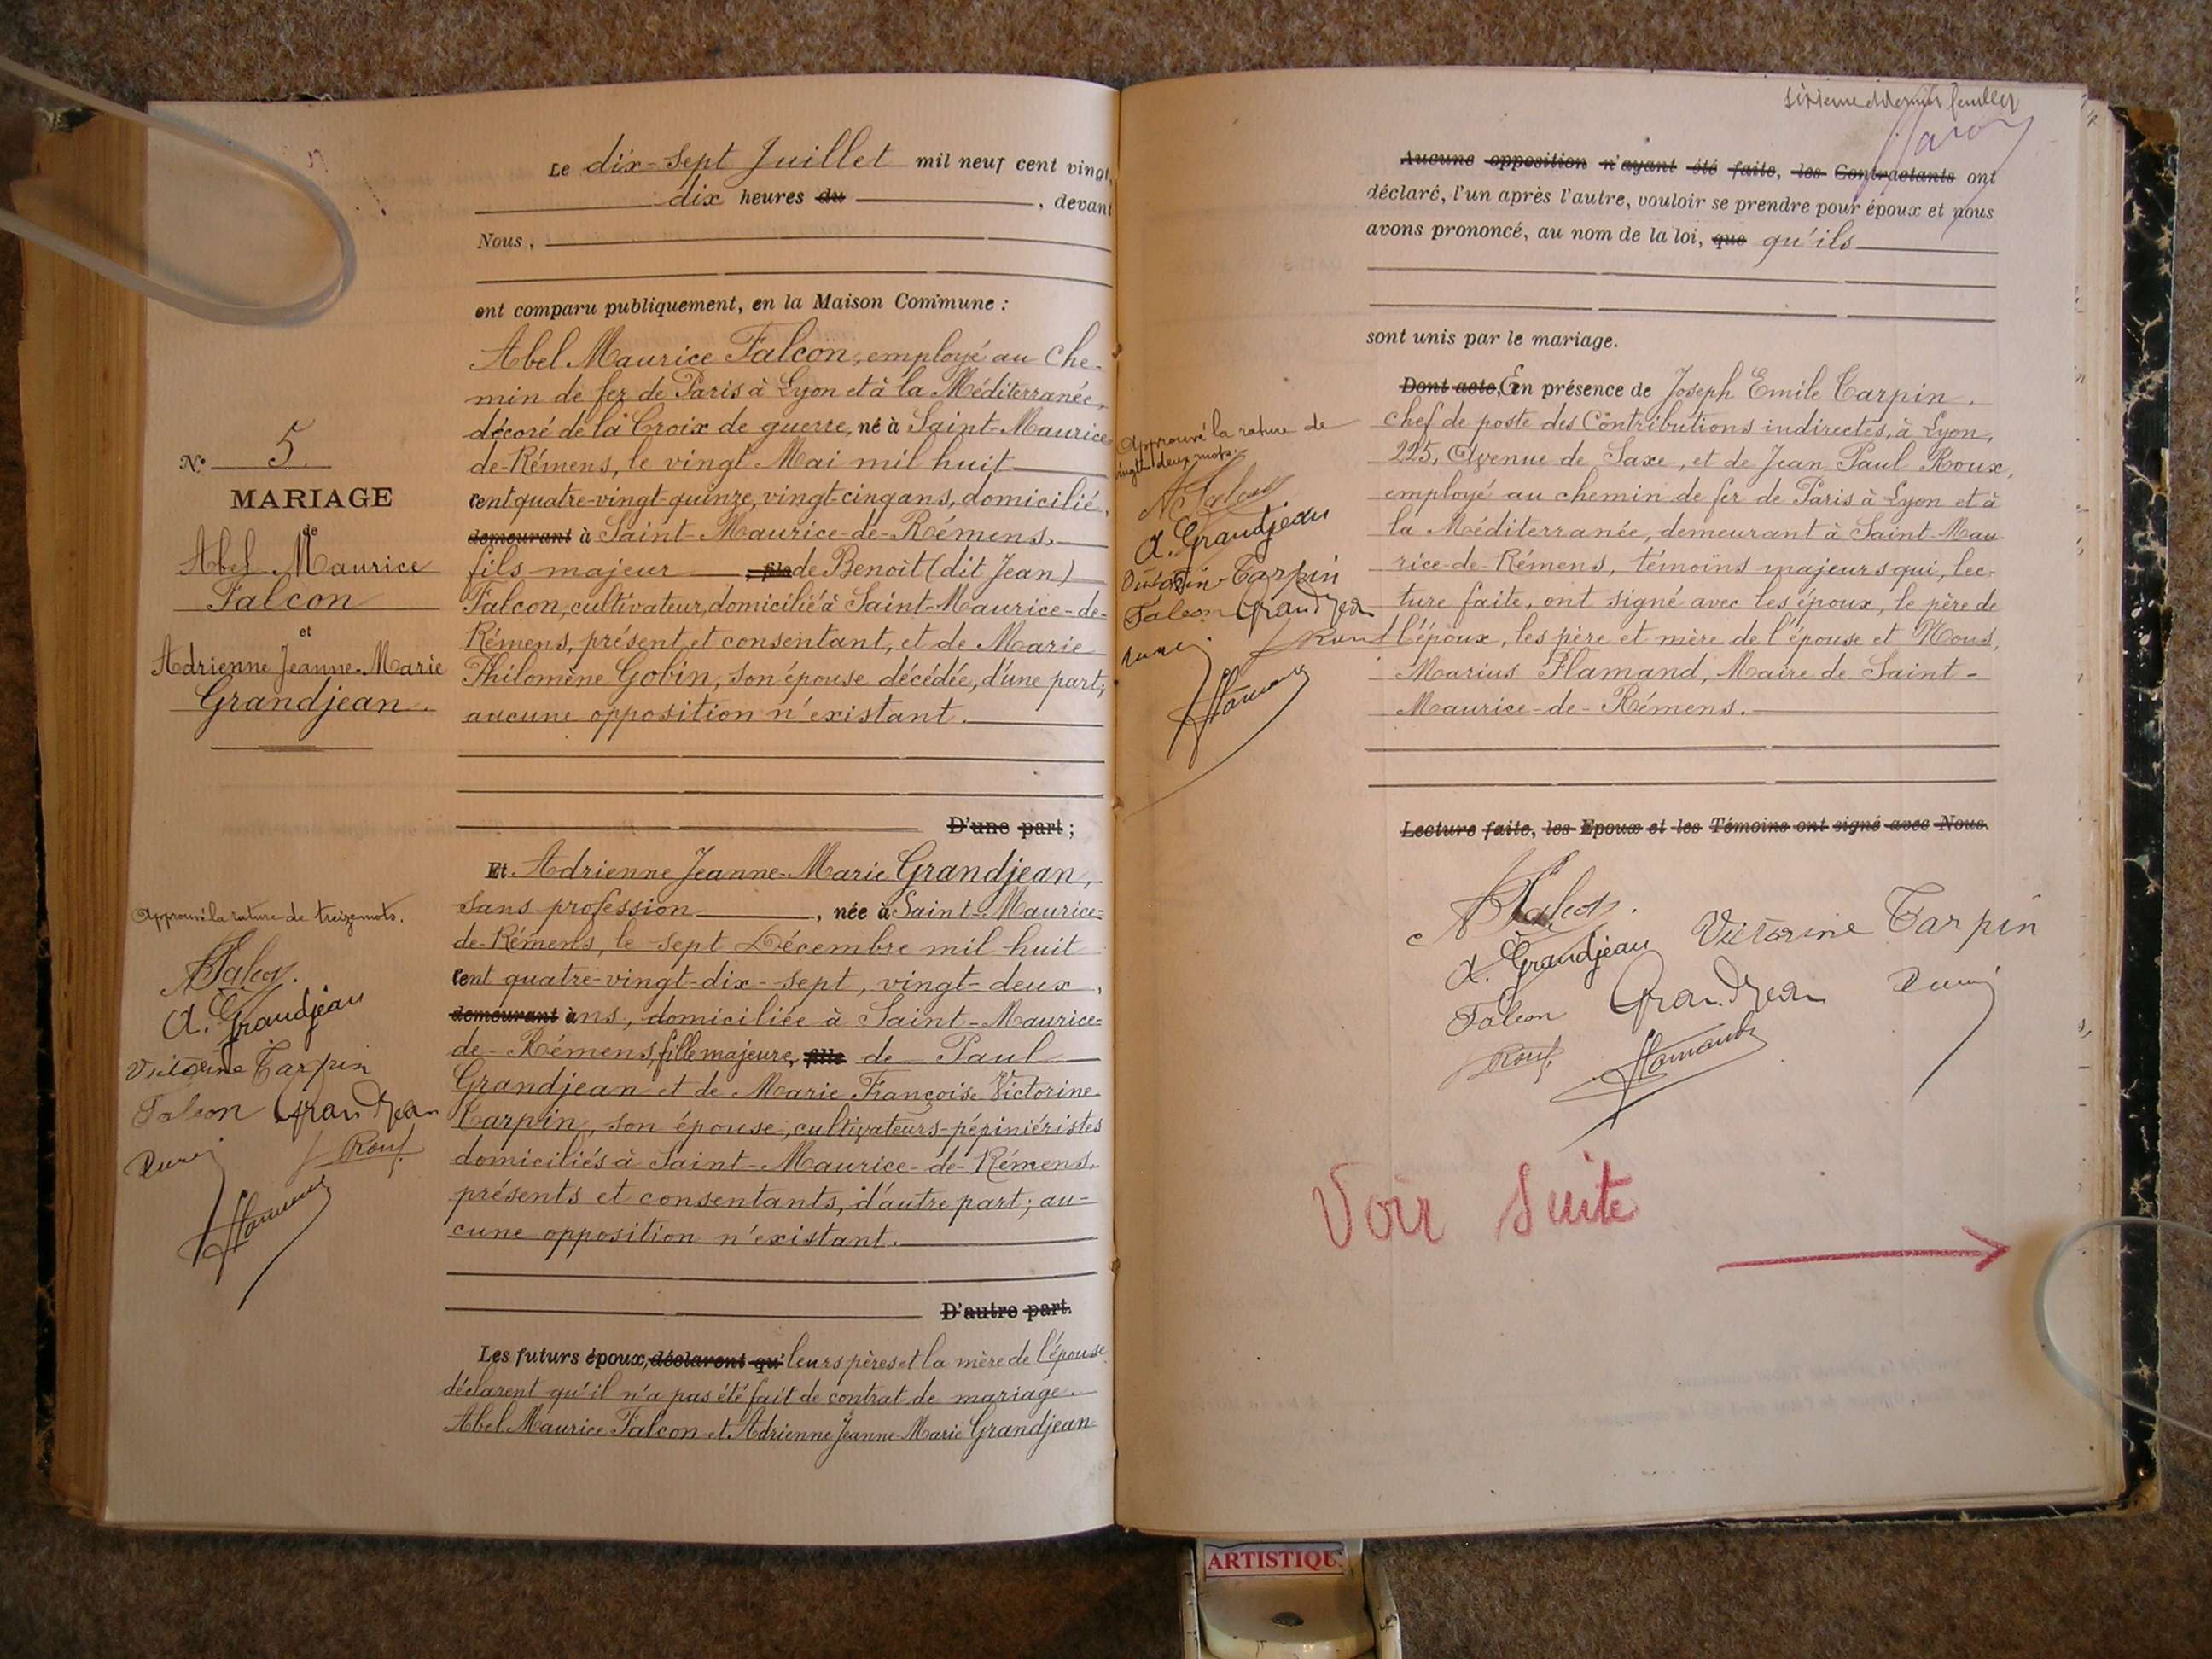 N° 5
MARIAGE
de
Abel Maurice
Falcon
et
Adrienne Jeanne-Marie
Grandjean.
Approuvé la rature de treize mots.
A. Falcon.
A. Grandjean
Victorine Tarpin
Falcon Grandjean
Roux
Le dix-sept Juillet mil neuf cent vingt,
dix heures du , devant
Nous,
ont comparu publiquement, en la Maison Commune :
Abel Maurice Falcon, employé au che-
min de fer de Paris à Lyon et à la Méditerranée,
décoré de la Croix de guerre, né à Saint-Maurice-
de-Rémens, le vingt Mai mil huit
cent quatre-vingt-quinze, vingt-cinq ans, domicilié,
demeurant à Saint-Maurice-de-Rémens,
fils majeur , fils de Benoit (dit Jean)
Falcon, cultivateur, domicilié à Saint-Maurice-de-
Rémens, présent et consentant, et de Marie
Philomène Gobin, son épouse décédée, d'une part;
aucune opposition n'existant.
D'une part ;
Et Adrienne Jeanne-Marie Grandjean,
sans profession , née à Saint-Maurice-
de-Rémens, le sept Décembre mil huit
cent quatre-vingt-dix-sept, vingt-deux,
demeurant àns, domiciliée à Saint-Maurice-
de-Rémens, fille majeure, fille de Paul
Grandjean et de Marie Françoise Victorine
Tarpin, son épouse, cultivateurs-pépiniéristes
domiciliés à Saint-Maurice-de-Rémens,
présents et consentants, d'autre part; au-
cune opposition n'existant.
D'autre part.
Les futurs époux, déclarent qu' leurs pères et la mère de l'épouse
déclarent qu'il n'a pas été fait de contrat de mariage.
Abel Maurice Falcon et Adrienne Jeanne-Marie Grandjean
sixième et dernier feuillet
Approuvé la rature de
vingt deux mots.
A. Falcon
A. Grandjean
Victorine Tarpin
Falcon Grandjean
Roux
Flamand
Aucune opposition n'ayant été faite, les Contractants ont
déclaré, l'un après l'autre, vouloir se prendre pour époux et nous
avons prononcé, au nom de la loi, que qu'ils
sont unis par le mariage.
Dont acte, En présence de Joseph Emile Tarpin,
chef de poste des Contributions indirectes, à Lyon,
225, Avenue de Saxe, et de Jean Paul Roux,
employé au chemin de fer de Paris à Lyon et à
la Méditerranée, demeurant à Saint-Mau
rice-de-Rémens, témoins majeurs qui, lec-
ture faite, ont signé avec les époux, le père de
l'époux, les père et mère de l'épouse et Nous,
Marius Flamand, Maire de Saint-
Maurice-de-Rémens.
Lecture faite, les Epoux et les Témoins ont signé avec Nous.
A. Falcon.
A. Grandjean Victorine Tarpin
Falcon Grandjean
Roux Flamand
Voir Suite
ARTISTIQUE